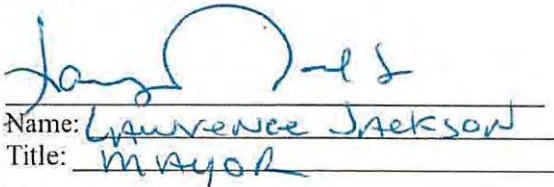 Name: Lawrence Jackson
Title: Mayor